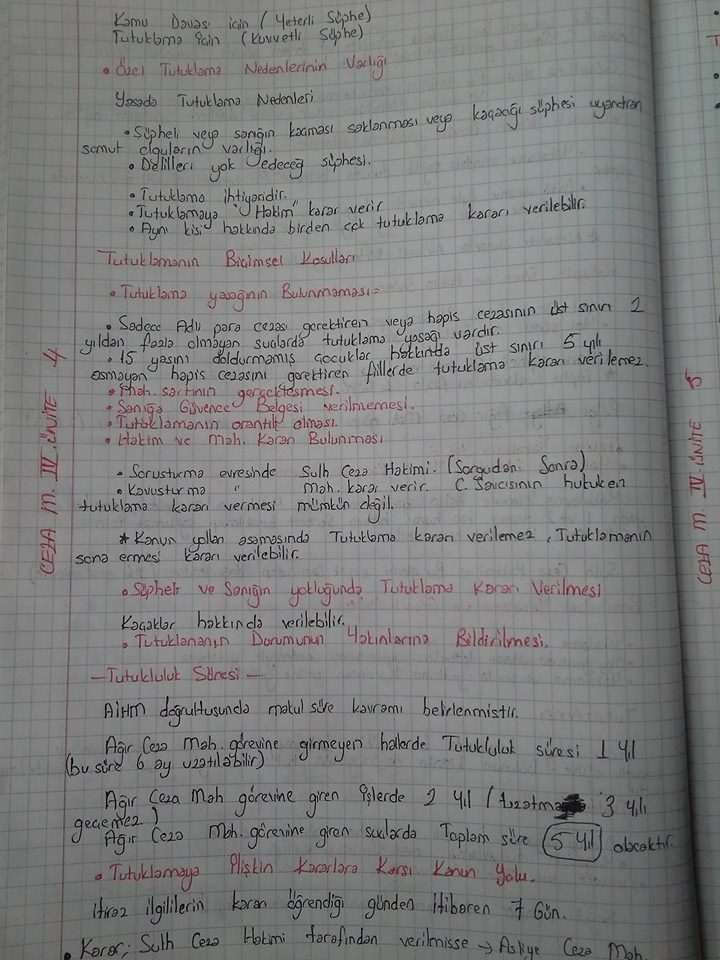 Kamu Davası için (Yeterli Şüphe)
Tutuklama için (Kuvvetli Şüphe)
• Özel Tutuklama Nedenlerinin Varlığı
Yasada Tutuklama Nedenleri
• Şüpheli veya sanığın kaçması saklanması veya kaçacağı şüphesi uyandıran
somut olguların varlığı.
• Delilleri yok edeceğ şüphesi.
• Tutuklama ihtiyaridir.
• Tutuklamaya "Hakim" karar verir
• Aynı kişi hakkında birden çok tutuklama kararı verilebilir.
Tutuklamanın Biçimsel Koşulları
• Tutuklama yasağının Bulunmaması:-
• Sadece Adli para cezası gerektiren veya hapis cezasının üst sınırı 2
yıldan fazla olmayan suçlarda tutuklama yasağı vardır.
• 15 yaşını doldurmamış çocuklar hakkında üst sınırı 5 yılı
aşmayan hapis cezasını gerektiren fiillerde tutuklama kararı verilemez.
• Muh. şartının gerçekleşmesi.
• Sanığa Güvence Belgesi verilmemesi.
• Tutuklamanın orantılı olması.
• Hakim ve Mah. Kararı Bulunması
• Soruşturma evresinde Sulh Ceza Hakimi. (Sorgudan Sonra)
• Kovuşturma " Mah. kararı verir. C. Savcısının hukuken
tutuklama kararı vermesi mümkün değil.
* Kanun yolları aşamasında Tutuklama kararı verilemez, Tutuklamanın
sona ermesi kararı verilebilir.
• Şüpheli ve Sanığın yokluğunda Tutuklama Kararı Verilmesi
Kaçaklar hakkında verilebilir.
• Tutuklananın Durumunun Yakınlarına Bildirilmesi.
— Tutukluluk Süresi —
AİHM doğrultusunda makul süre kavramı belirlenmiştir.
Ağır Ceza Mah. görevine girmeyen hallerde Tutukluluk süresi 1 yıl
(bu süre 6 ay uzatılabilir)
Ağır Ceza Mah görevine giren işlerde 2 yıl (uzatma 3 yılı
geçemez)
Ağır Ceza Mah. görevine giren suçlarda Toplam süre 5 yıl olacaktır.
• Tutuklamaya İlişkin Kararlara Karşı Kanun Yolu.
İtiraz ilgililerin kararı öğrendiği günden itibaren 7 Gün.
• Karar; Sulh Ceza Hakimi tarafından verilmişse → Asliye Ceza Mah.
CEZA M. IV. ÜNİTE 4
CEZA M. IV. ÜNİTE 5